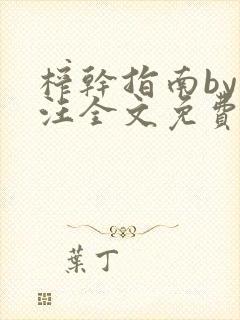 榨幹指南by
注全文免費
葉丁